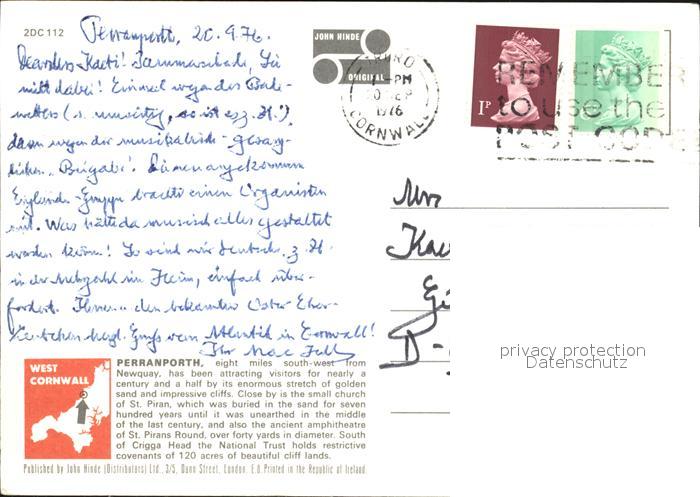 2DC 112
Perranporth, 20.9.76.
JOHN HINDE
ORIGINAL
TRURO
-PM
20 SEP
1976
CORNWALL
1P
REMEMBER
to use the
POST CODE
mit dabei! Einmal wegen des Bade-
wetters
dann wegen der musikalisch-gesang-
lichen "Beigabe".
England-Gruppe brachte einen Organisten
mit. Was hätte da musisch alles gestaltet
werden können! So sind wir Deutsche, z. Zt.
in der Mehrzahl im Heim, einfach über-
fordert. Ihnen u. den bekannten
herzl. Gruß vom Atlantik in Cornwall!
Ihr
D-
privacy protection
Datenschutz
WEST
CORNWALL
PERRANPORTH, eight miles south-west from
Newquay, has been attracting visitors for nearly a
century and a half by its enormous stretch of golden
sand and impressive cliffs. Close by is the small church
of St. Piran, which was buried in the sand for seven
hundred years until it was unearthed in the middle
of the last century, and also the ancient amphitheatre
of St. Pirans Round, over forty yards in diameter. South
of Crigga Head the National Trust holds restrictive
covenants of 120 acres of beautiful cliff lands.
Published by John Hinde (Distributors) Ltd., 3/5, Dunn Street, London. E.8. Printed in the Republic of Ireland.